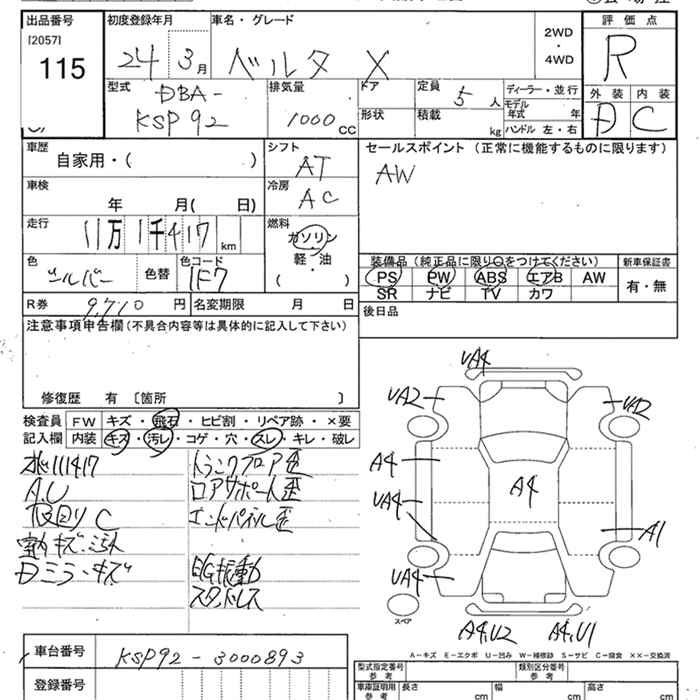 出品番号 初度登録年月 車名・グレード 評価点
[2057] 2WD
115 24 3月 ベルタ X ・ R
4WD
型式 排気量 ドア 定員 ディーラー・並行 外装 内装
DBA- 5人 モデル年式 年 D C
KSP92 1000cc 形状 積載 kg ハンドル 左・右
車歴 シフト セールスポイント (正常に機能するものに限ります)
自家用・( ) AT AW
車検 冷房
年 月( 日) AC
走行 燃料
11万1千417km ガソリン
軽・油
( )
装備品 (純正品に限り○をつけてください) 新車保証書
色 色替 色コード PS PW ABS エアB AW 有・無
シルバー 1F7 SR ナビ TV カワ
R券 9,710円 名変期限 月 日 後日品
注意事項申告欄 (不具合内容等は具体的に記入して下さい)
修復歴 有 〔箇所 〕
検査員 FW キズ・飛石・ヒビ割・リペア跡・×要
記入欄 内装 キズ・汚レ・コゲ・穴・スレ・キレ・破レ
111417 トランクフロア歪
A.U ロアサポート歪
C エンドパネル歪
室内キズ・汚れ
Dミラーキズ E/G振動
スタッドレス
UA4
UA2 UA2
A4 A4
UA4 A1
UA4
スペア
A4,U2 A4,U1
A-キズ E-エクボ U-凹み W-補修跡 S-サビ C-腐食 ××-交換済
車台番号 KSP92-3000893
登録番号
型式指定番号 参考 類別区分番号 参考
車庫証明用 参考 長さ cm 幅 cm 高さ cm